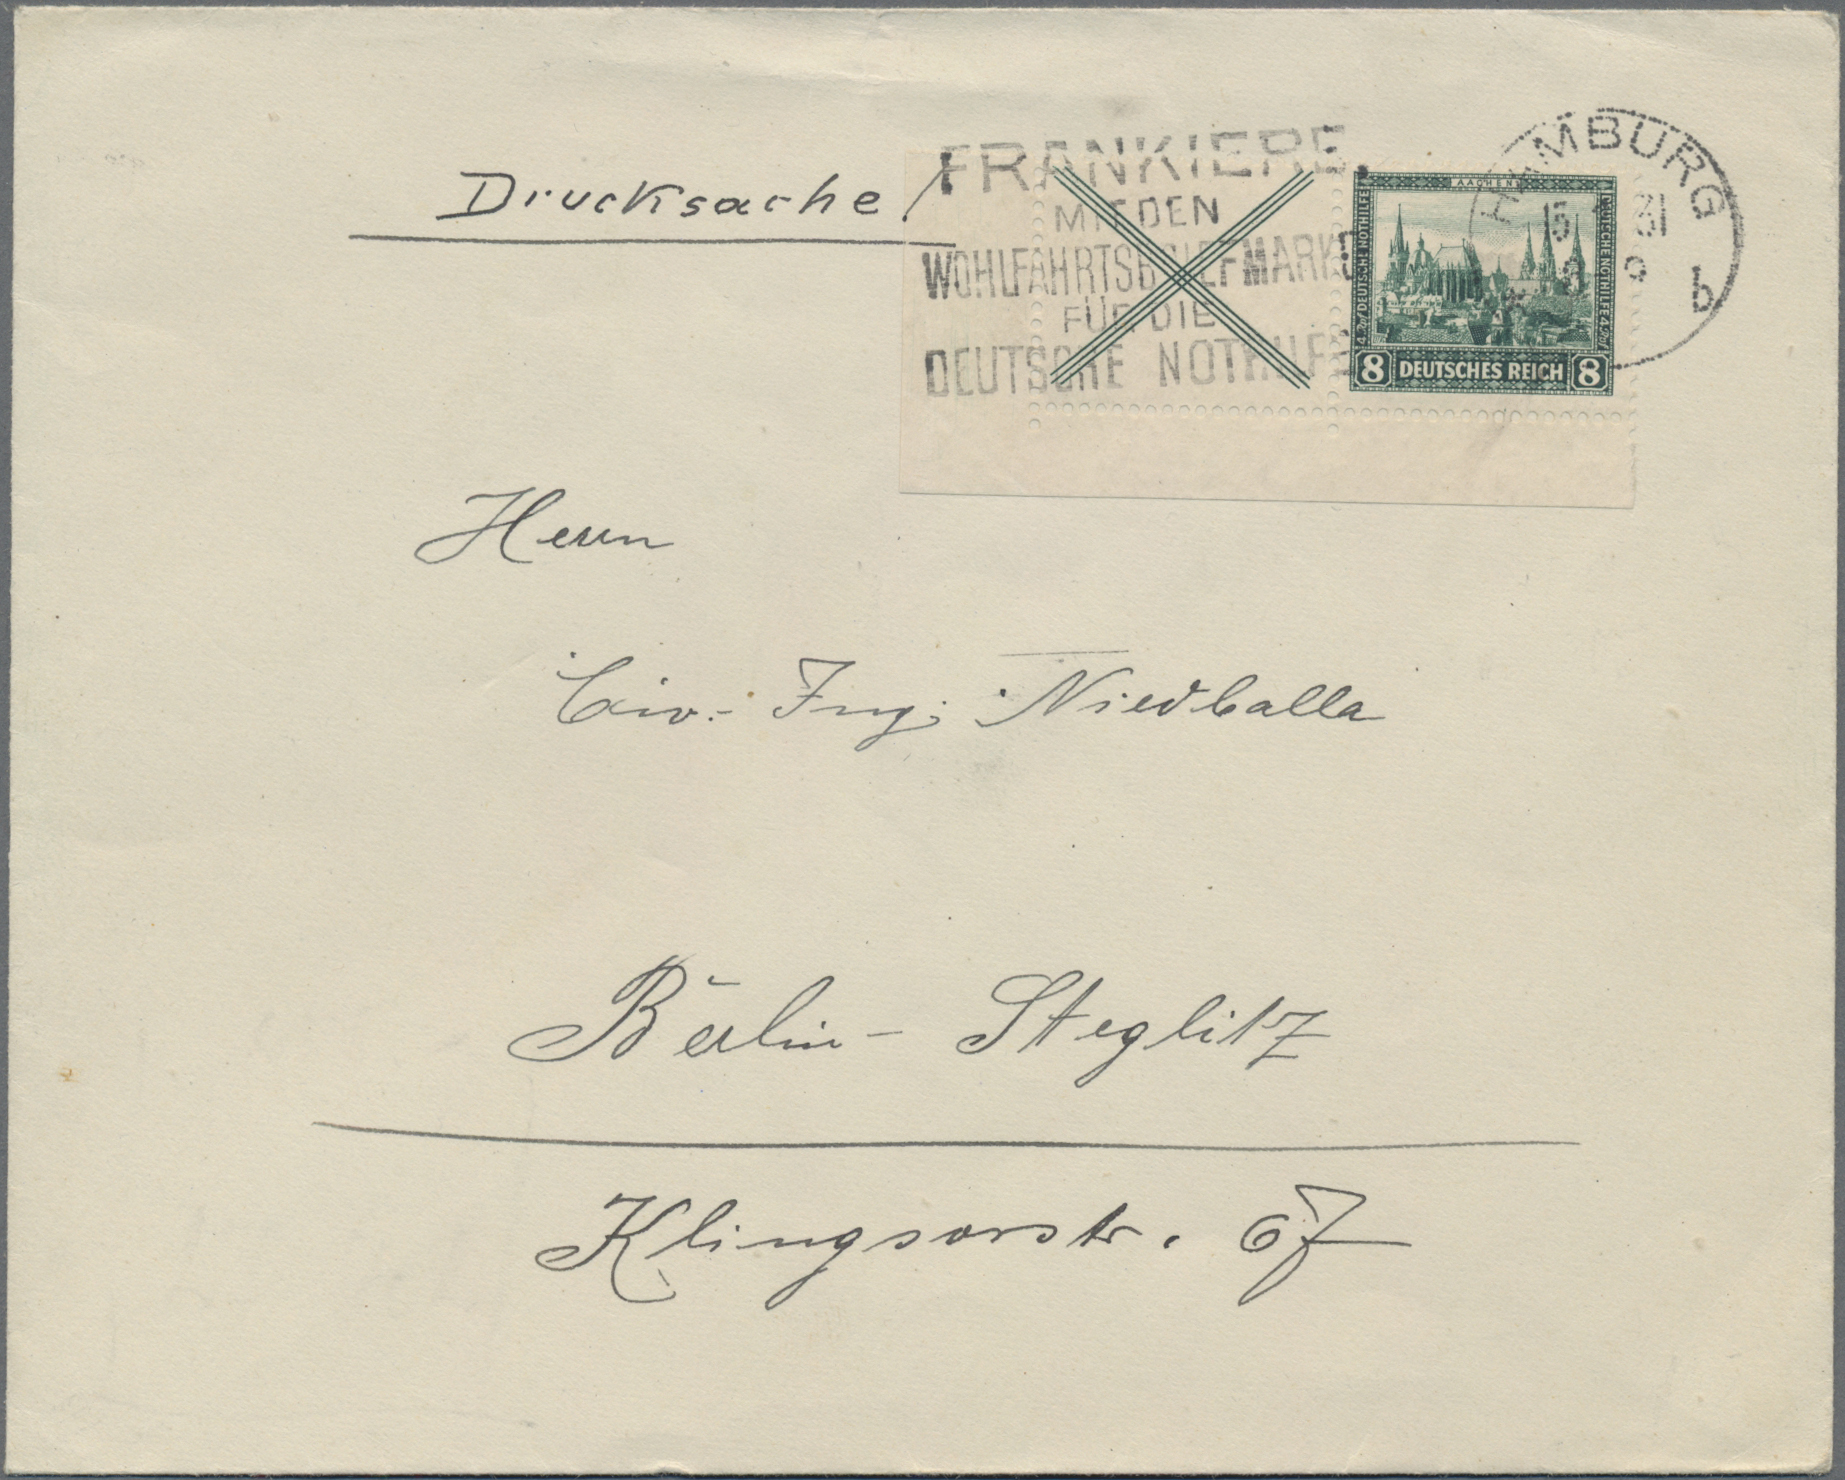 Drucksache /
FRANKIERE
MIT DEN
WOHLFAHRTSBRIEFMARKEN
FÜR DIE
DEUTSCHE NOTHILFE
AACHEN
4 Pf DEUTSCHE NOTHILFE
DEUTSCHE NOTHILFE 4 Pf
8 DEUTSCHES REICH 8
HAMBURG
15 31
b
Herrn
Civ.- Ing. Niedballa
Berlin - Steglitz
Klingsorstr. 67